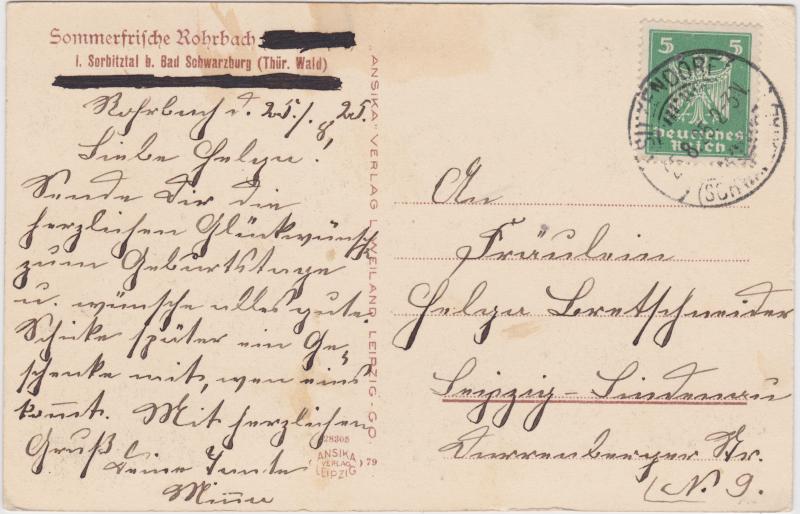 Sommerfrische Rohrbach
i. Sorbitztal b. Bad Schwarzburg (Thür. Wald)
Rohrbach d. 25./8. 25.
Liebe Helga!
Sende Dir die
herzlichen Glückwünsch
zum Geburtstage
u. wünsche alles gute
Schicke später ein Ge-
schenke mit, wen eins
kommt. Mit herzlichen
Gruß
Deine Tante
Minna
"ANSIKA" VERLAG L. WEILAND LEIPZIG-GO.
28305
ANSIKA
VERLAG
LEIPZIG
79
5 5
Deutsches
Reich
An
Fräulein
Helga Bretschneider
Leipzig-Lindenau
Durrenberger Str.
N. 9.